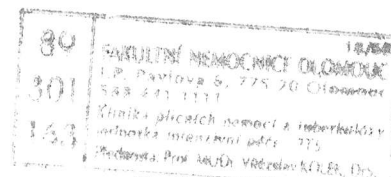 89
301
163
FAKULTNÍ NEMOCNICE OLOMOUC
I.P. Pavlova 6, 775 20 Olomouc
588 441 1111
Klinika plicních nemocí a tuberkulózy
jednotka intenzivní péče
Prof. MUDr. Vítězslav KOLEK, DrSc.